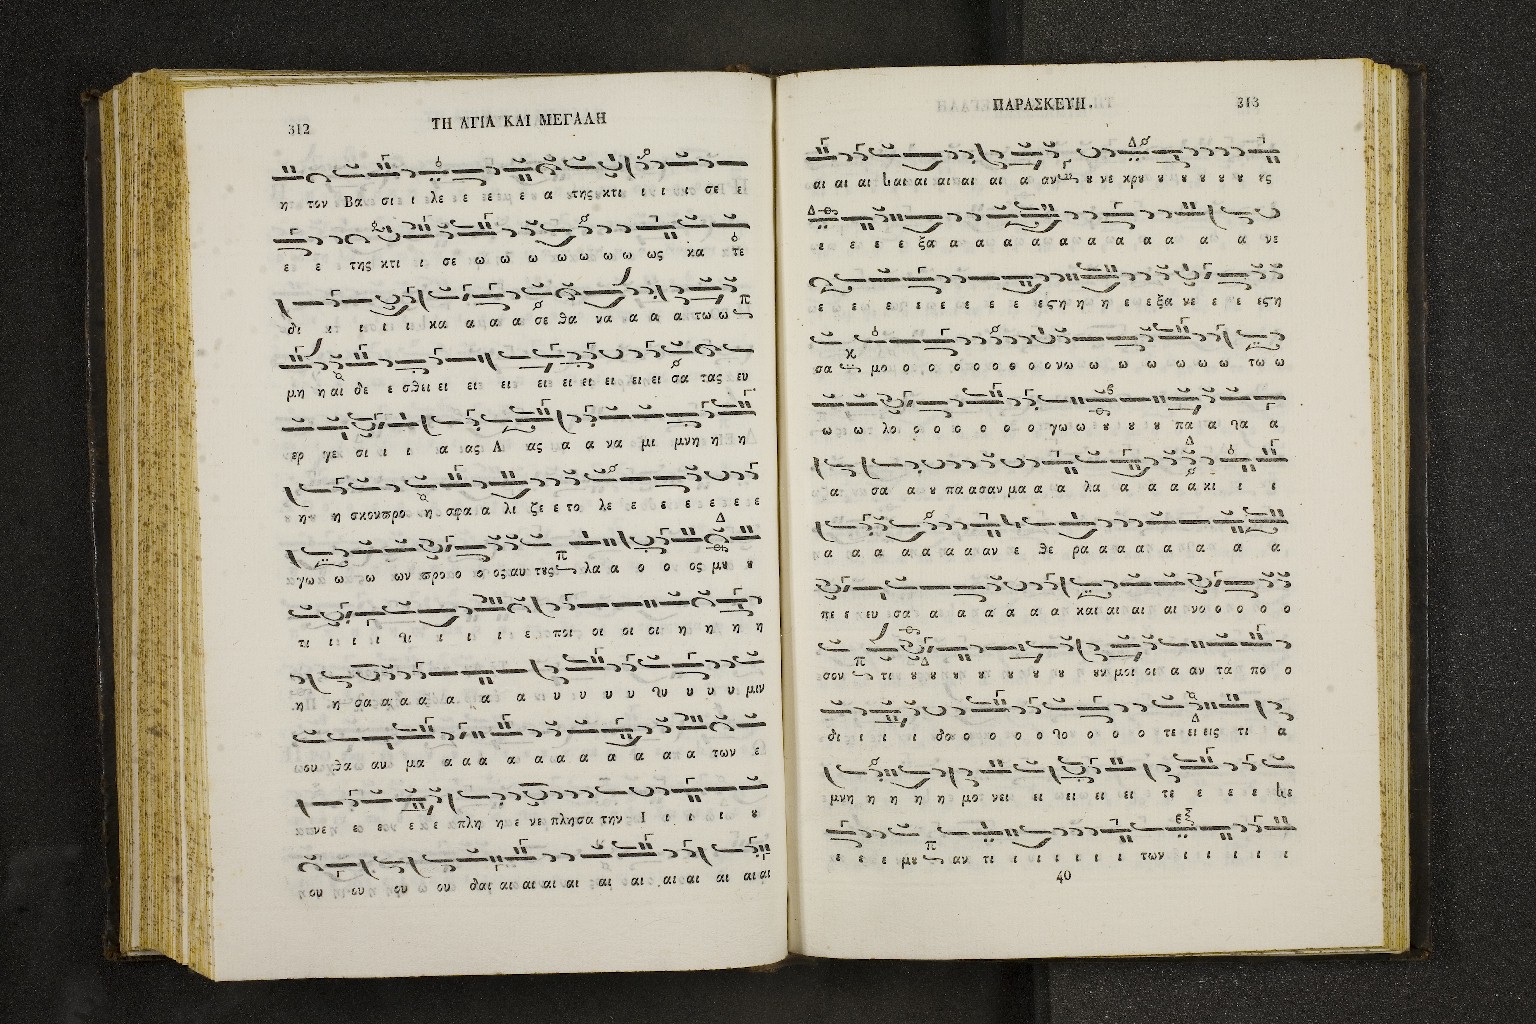 312
ΤΗ ΑΓΙΑ ΚΑΙ ΜΕΓΑΛΗ
η τον Βα σι ι λε ε ε ε α της κτι ι ι ι σε ε
ε ε της κτι ι σε ω ω ω ω ω ω ω ως κα τε
δι ι ι ι ι κα α α α σε θα να α α α τω ω
μη η αι δε ε σθει ει ει ει ει ει ει ει ει ει σα τας ευ
ερ γε σι ι ι α ας Λ ας α α να μι μνη η η
ην η σκον προ η σφα α λι ζε ε το λε ε ε ε ε ε ε
γω ω ω ων προ ο ο ος αυ τȣς λα α ο ο ος μȣ ȣ
τι ι ι ι ι ι ι ι ε ποι οι οι οι η η η η
η η σα α α α α α α υ υ υ υ υ υ υ μιν
ου θα αυ μα α α α α α α α α α α α των ε
νε ε ε ε ε ε πλη η ε νε πλησα την Ι ι ι ι ȣ
ου ου ου ου δαι αι αι αι αι αι αι αι αι αι αι αι
ΠΑΡΑΣΚΕΥΗ.
313
αι αι αι και αι αι αι αι α αν ȣ νε κρȣ ȣ ȣ ȣ ȣ ȣ ȣς
ε ε ε ε ξα α α α α α α α α α α α α νε
ε ε ε ε ε ε ε ε ε ςη η η ε ε ξα νε ε ε ε ςη
σα μο ο ο ο ο ο ο ο νω ω ω ω ω ω ω τω ω
ω ω λο ο ο ο ο ο ο γω ω ȣ ȣ ȣ πα α α α
α σα α ȣ πα α σαν μα α α λα α α α α κι ι ι
α α α α α α α α αν ε θε ρα α α α α α α α
πε ε ευ σα α α α α α α και αι αι αι αι νο ο ο ο ο
σον τι ȣ ȣ ȣ ȣ ȣ ȣ ȣ ȣ ȣν μοι οι α αν τα πο ο
δι ι ι ι δο ο ο ο ο ο ο ο ο τε ει εις τι α
μνη η η η η μο νει ει ει ει ει τε ε ε ε κε
ε ε ε μȣ αν τι ι ι ι ι ι ι των ι ι ι ι ι
40